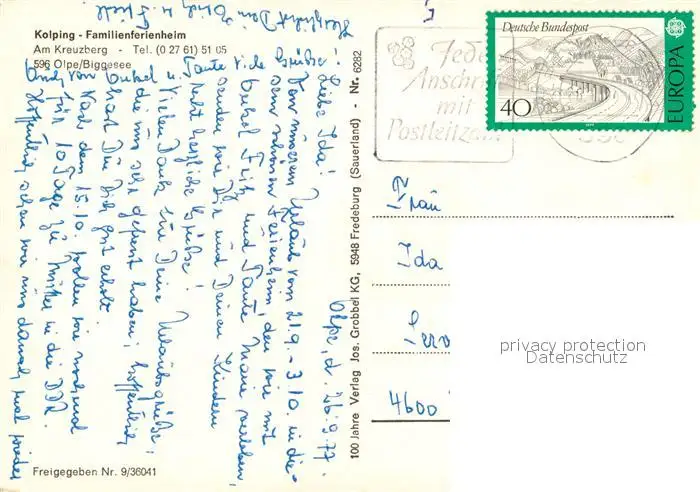 Kolping - Familienferienheim
Am Kreuzberg - Tel. (0 27 61) 51 05
596 Olpe/Biggesee
Olpe, d. 26.9.77.
Liebe Ida!
Von unserem Urlaub vom 21.9. - 3.10. in die-
sem schönen Ferienheim, den wir mit
Onkel Fritz und Tante Marie verleben,
senden wir Dir und Deinen Kindern
recht herzliche Grüße!
Vielen Dank für Deine Urlaubsgrüße,
die uns sehr gefreut haben; hoffentlich
hast Du Dich gut erholt.
Nach dem 15.10. wollen wir nochmal
für 10 Tage zu Mutter in die DDR.
Hoffentlich sehen wir uns danach mal wieder
Herzlichst Dein
Auch von Onkel u. Tante viele Grüße!
Freigegeben Nr. 9/36041
100 Jahre Verlag Jos. Grobbel KG, 5948 Fredeburg (Sauerland) - Nr. 6282
Jede
Anschrift
mit
Postleitzahl
Deutsche Bundespost
40
EUROPA
Frau
Ida
4600
privacy protection
Datenschutz